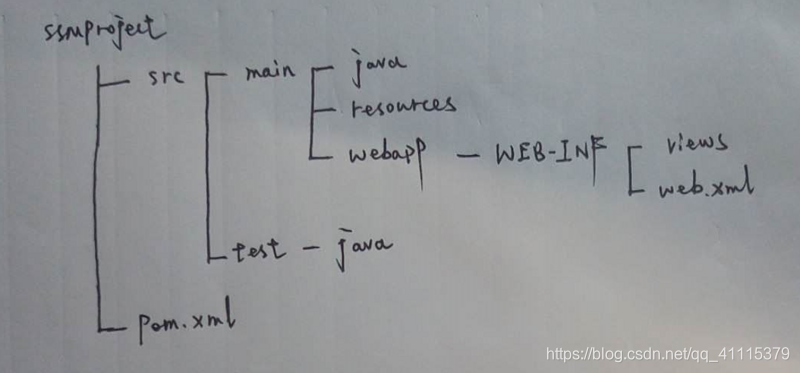 ssmproject
src main java
resources
webapp - WEB-INF views
web.xml
test - java
pom.xml
https://blog.csdn.net/qq_41115379